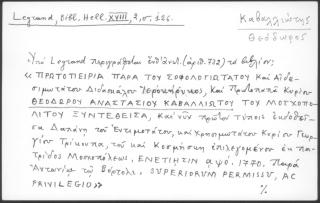 Legrand, Bibl. Hell. XVIII, 2, σ. 126.
Καβαλλιώτης
Θεόδωρος
Ὑπὸ Legrand περιγράφεται ἐνθ' ἀνωτ. (ἀριθ. 712) τὸ βιβλίον:
« ΠΡΩΤΟΠΕΙΡΙΑ ΠΑΡΑ ΤΟΥ ΣΟΦΟΛΟΓΙΩΤΑΤΟΥ ΚΑΙ ΑΙΔΕ-
ΣΙΜΩΤΑΤΟΥ Διδασκάλου Ἱεροκήρυκος, Καὶ Πρωτοπαπᾶ Κυρίου
ΘΕΟΔΩΡΟΥ ΑΝΑΣΤΑΣΙΟΥ ΚΑΒΑΛΛΙΩΤΟΥ ΤΟΥ ΜΟΣΧΟΠΟ-
ΛΙΤΟΥ ΣΥΝΤΕΘΕΙΣΑ, Καὶ νῦν πρῶτον τύποις ἐκδοθεῖ-
σα Δαπάνῃ τοῦ Ἐντιμοτάτου, καὶ χρησιμωτάτου Κυρίου Γεωρ-
γίου Τρίκουπα, τοῦ καὶ Κοσμήσκη ἐπιλεγομένου ἐκ πα-
τρίδος Μοσχοπόλεως. ΕΝΕΤΙΗΣΙΝ αψο. 1770. Παρὰ
Ἀντωνίῳ τῷ Βόρτολι. SUPERIORUM PERMISSU, AC
PRIVILEGIO»
·/.